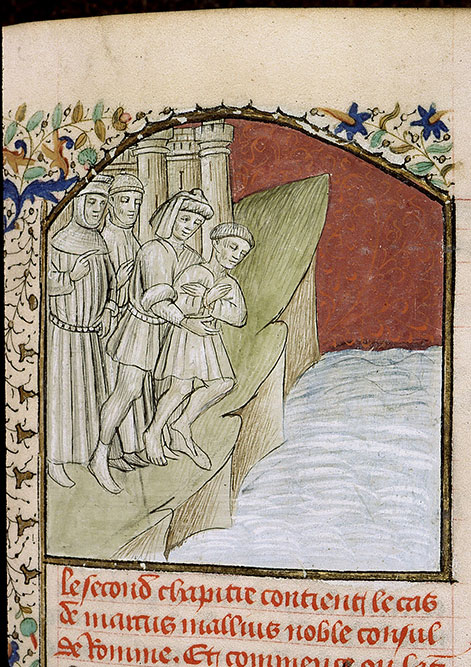 Le second chapitre contient le cas
de marcus mallius noble consul
de Romme. Et commence ou lat